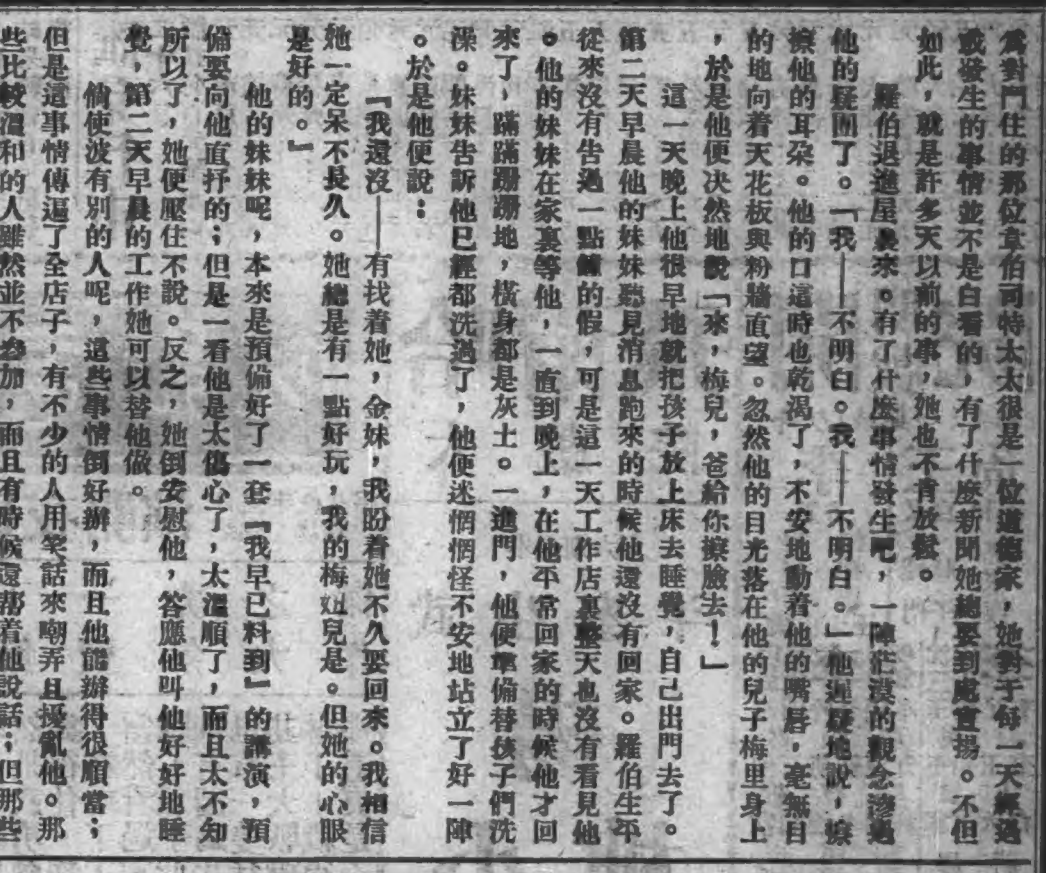 爲對門住的那位韋伯司特太太很是一位道德家，她對于每一天經過
或發生的事情並不是白看的，有了什麽新聞她總要到處宣揚。不但
如此，就是許多天以前的事，她也不肯放鬆。
羅伯退進屋裏來。有了什麽事情發生吧，一陣茫漠的觀念滲過
他的疑團了。「我——不明白。我——不明白。」他遲疑地說，擦
擦他的耳朵。他的口這時也乾渴了，不安地動着他的嘴唇，毫無目
的地向着天花板與粉牆直望。忽然他的目光落在他的兒子梅里身上
，於是他便决然地說「來，梅兒，爸給你擦臉去！」
這一天晚上他很早地就把孩子放上床去睡覺，自己出門去了。
第二天早晨他的妹妹聽見消息跑來的時候他還沒有回家。羅伯生平
從來沒有告過一點鐘的假，可是這一天工作店裏整天也沒有看見他
。他的妹妹在家裏等他，一直到晚上，在他平常回家的時候他才回
來了，蹣蹣跚跚地，橫身都是灰土。一進門，他便準備替孩子們洗
澡。妹妹告訴他已經都洗過了，他便迷惘惘怪不安地站立了好一陣
。於是他便說：
『我還沒——有找着她，金妹，我盼着她不久要回來。我相信
她一定呆不長久。她總是有一點好玩，我的梅妞兒是。但她的心眼
是好的。』
他的妹妹呢，本來是預備好了一套『我早已料到』的講演，預
備要向他直抒的；但是一看他是太傷心了，太溫順了，而且太不知
所以了，她便壓住不說。反之，她倒安慰他，答應他叫他好好地睡
覺，第二天早晨的工作她可以替他做。
倘使沒有別的人呢，這些事情倒好辦，而且他能辦得很順當；
但是這事情傳遍了全店子，有不少的人用笑話來嘲弄且擾亂他。那
些比較溫和的人雖然並不參加，而且有時候還幫着他說話；但那些